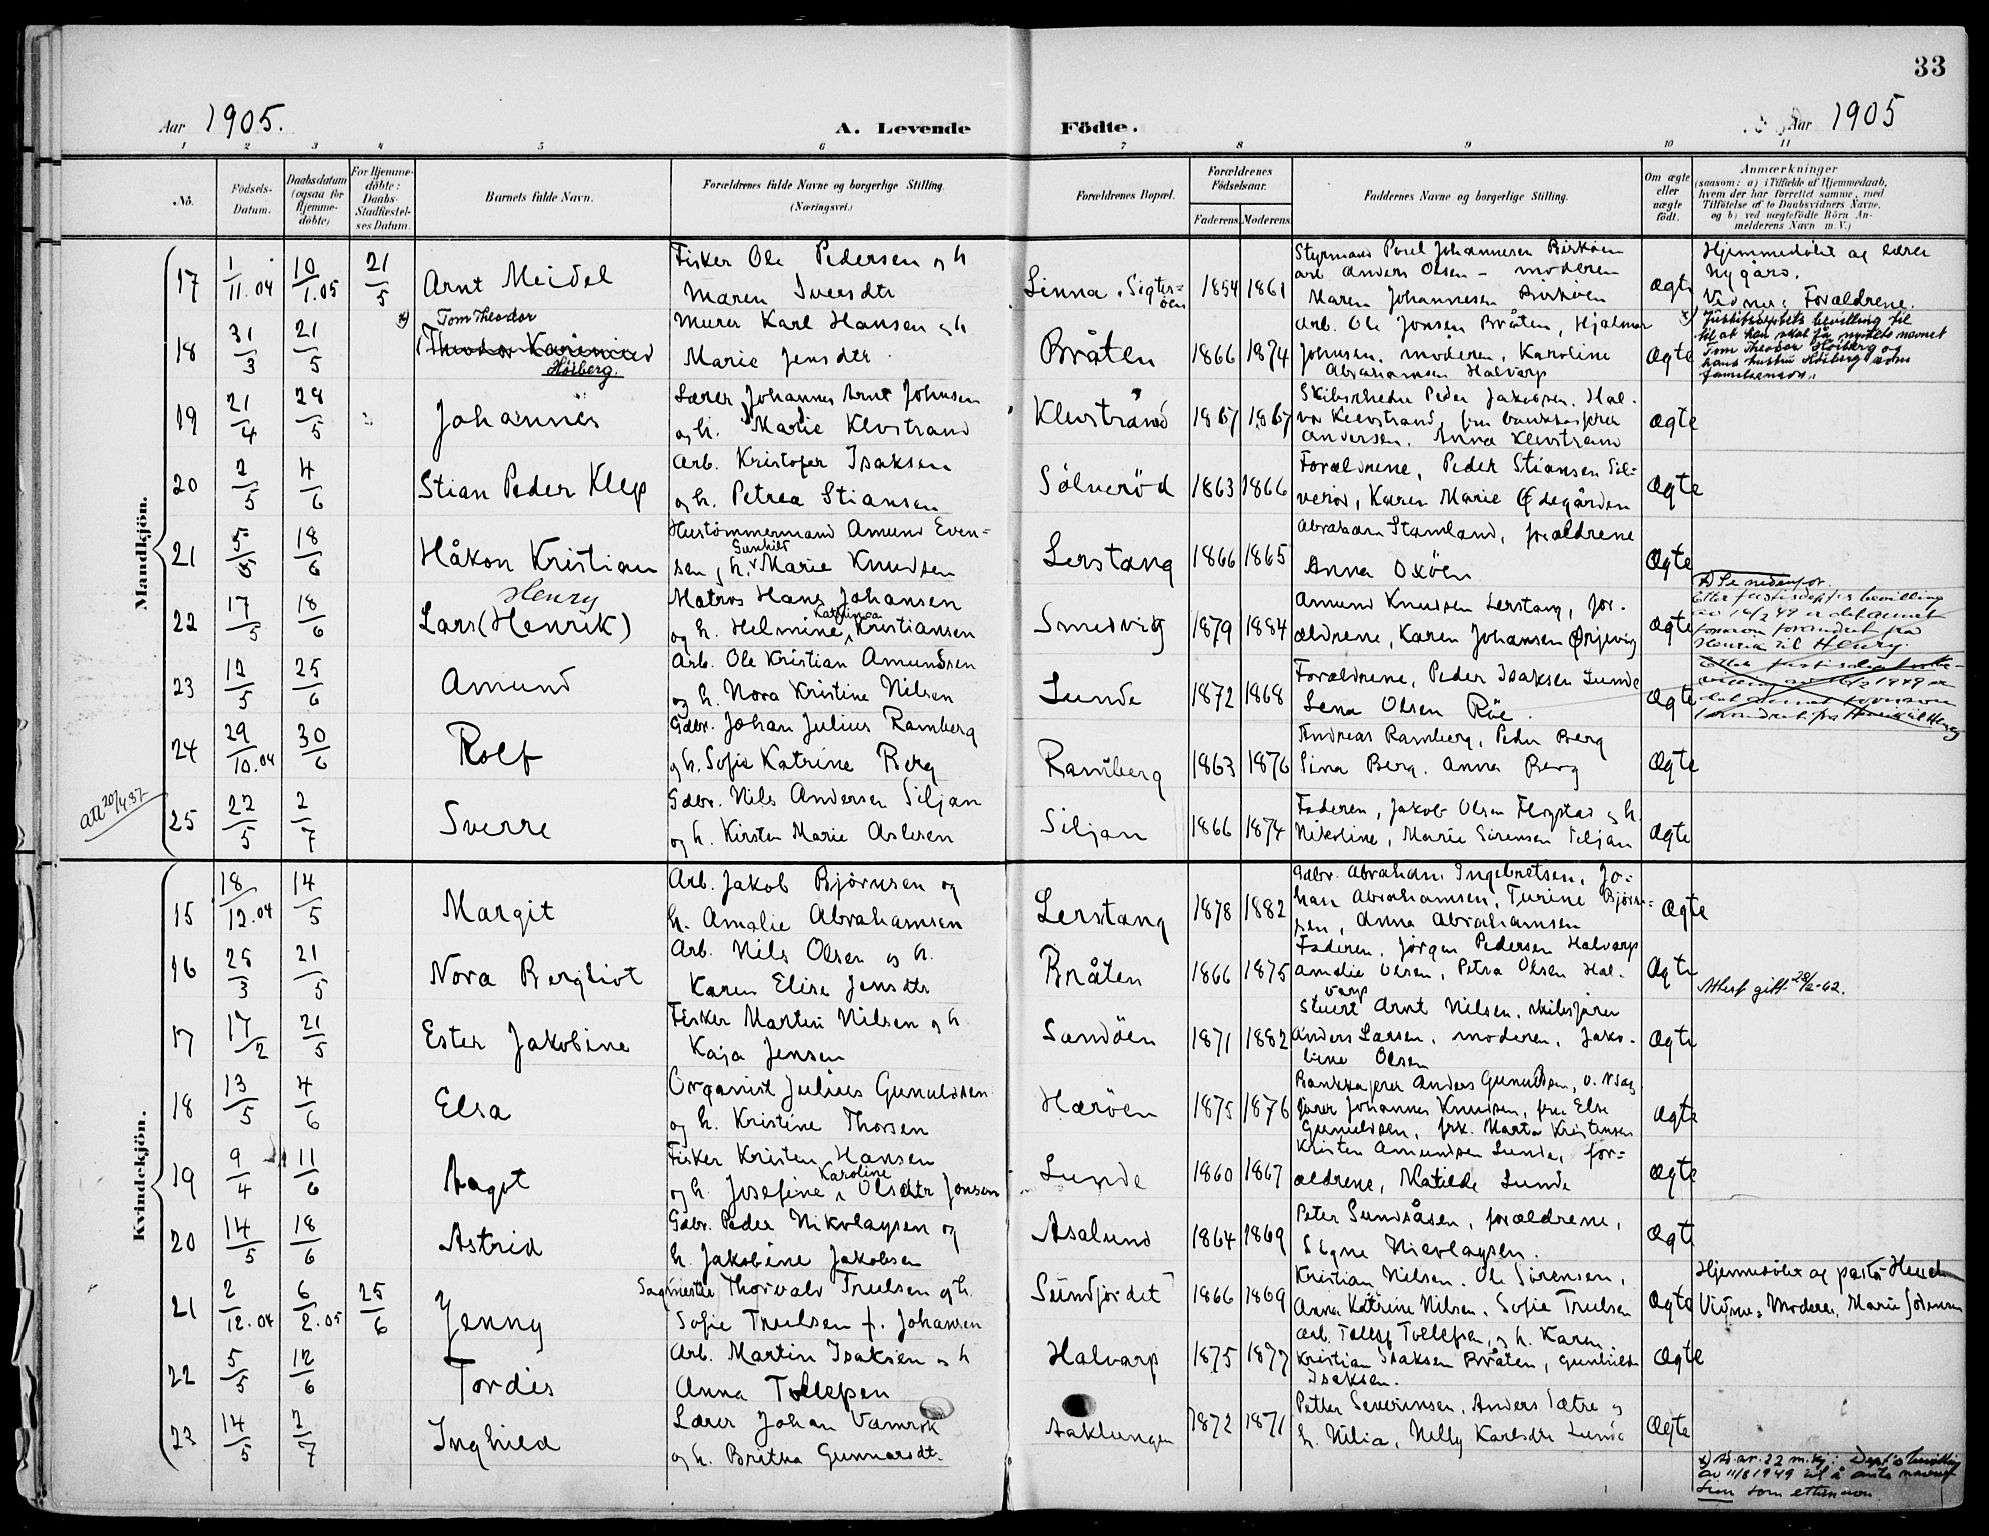 33
Aar 1905.
A. Levende Födte.
Aar 1905
1 2 3 4 5 6 7 8 9 10 11
No.
Födsels-Datum.
Daabsdatum (ogsaa for Hjemme-döbte)
For Hjemme-döbte: Daabs-Stadfæstel-ses Datum.
Barnets fulde Navn.
Forældrenes fulde Navne og borgerlige Stilling. (Næringsvei.)
Forældrenes Bopæl.
Forældrenes Födselsaar.
Faderens Moderens
Faddernes Navne og borgerlige Stilling.
Om ægte eller uægte födt.
Anmærkninger
(saasom: a) i Tilfælde af Hjemmedaab,
hvem der har forrettet samme, med
Tilföielse af to Daabsvidners Navne,
og b) ved uægtefödte Börn An-
melderens Navn m. V.)
Mandkjön.
17 1/11.04 10/1.05 21/5 Arnt Meidel
Fisker Ole Pedersen og h
Maren Iversdtr
1854 1861
Styrmand Povel Johannesen Birköen
arb. Anders Olsen - moderen
Maren Johannesen Birköen
Ægte
Hjemmedöbt af lærer
Nygård.
Vidner: Forældrene.
18 31/3 21/5 x) Tom Theodor
Höiberg.
Murer Karl Hansen og h
Marie Jensdtr
Bråten 1866 1874
Arb. Ole Jonsen Bråten, Hjalmar
Johnsen, moderen, Karoline
Abrahamsen Halvarp
Ægte
Tom Theodor Höiberg og
19 21/4 28/5 Johannes
Lærer Johannes Arnt Johnsen
og h. Marie Klevstrand
Klevstrand 1867 1867
Skibsrheder Peder Jakobsen, Hal-
vor Klevstrand, fru bankkasserer
Andersen, Anna Klevstrand
Ægte
20 2/5 4/6 Stian Peder Klep
Arb. Kristofer Isaksen
og h. Petrea Stiansen
Sölveröd 1863 1866
Forældrene, Peder Stiansen Söl-
veröd, Karen Marie Ødegården
Ægte
21 18/6 Håkon Kristian
Hustömmermand Amund Even-
sen, h. Gunhild Marie Knudsen
Lerstang 1866 1865
Abraham Stamland, forældrene
Anna Oxöen
Ægte
22 17/5 18/6 Lars (Henrik) Henry
Matros Hans Johansen
og h. Helmine Kathinca Kristiansen
Smedvig 1879 1884
Amund Knudsen Lerstang, for-
ældrene, Karen Johansen
Ægte
x) Se nedenfor.
Efter justisdept's bevilling
av 16/2 49 er det annet
fornavn forandret fra
Henrik til Henry.
23 12/5 25/6 Amund
Arb. Ole Kristian Amundsen
og h. Nora Kristine Nilsen
Lunde 1872 1868
Forældrene, Peder Isaksen Lunde
Lena Olsen Röe.
Ægte
24 29/10.04 30/6 Rolf
Gdbr. Johan Julius Ramberg
og h. Sofie Katrine Berg
Ramberg 1863 1876
Andreas Ramberg, Peder Berg
Sina Berg. Anna Berg
Ægte
att 20/4 37
25 22/5 2/7 Sverre
Gdbr. Nils Andersen Siljan
og h. Kirsten Marie Aslesen
Siljan 1866 1874
Faderen, Jakob Olsen Flogstad og h.
Nikoline, Marie Sörensen Siljan
Ægte
Kvindekjön.
15 18/12.04 14/5 Margit
Arb. Jakob Björnsen og
h. Amalie Abrahamsen
Lerstang 1878 1882
Gdbr. Abraham Ingebretsen, Jo-
han Abrahamsen, Turine Björn-
sen, Anna Abrahamsen
Ægte
16 25/3 21/5 Nora Bergliot
Arb. Nils Olsen og h.
Karen Elise Jensdtr
Bråten 1866 1875
Faderen, Jörgen Pedersen Halvarp
Amalie Olsen, Petra Olsen Hal-
varp
Ægte
Attest gift 28/2-62.
17 17/2 21/5 Ester Jakobine
Fisker Martin Nilsen og h.
Kaja Jensen
Sandöen 1871 1882
Stuert Arnt Nilsen, skibsförer
Anders Larsen, moderen, Jako-
bine Olsen
Ægte
18 13/5 4/6 Elsa
Organist Julius Gunuldsen
og h. Kristine Thorsen
Haröen 1875 1876
Bankkasserer Anders Gunuldsen,
förer Johannes Knudsen, fru Else
Gunuldsen, frk. Marta Kristensen
Ægte
19 9/4 11/6 Aagot
Fisker Kristen Hansen
og h. Josefine Karoline Olsdtr Jonsen
Lunde 1860 1867
Kristen Amundsen Lunde, for-
ældrene, Matilde Lunde
Ægte
20 14/5 18/6 Astrid
Gdbr. Peder Nikolaysen og
h. Jakobine Jakobsen
Åsalund 1864 1869
Peter Sundsåsen, forældrene,
Signe Nicolaysen.
Ægte
21 2/12.04 6/2.05 25/6 Jenny
Sagmester Thorvald Truelsen og h.
Sofie Truelsen f. Johansen
Sundjordet 1866 1869
Kristian Nilsen. Ole Sörensen,
Anna Katrine Nilsen. Sofie Truelsen
Ægte
Hjemmedöbt af pastor Heuch
Vidner: Moderen, Marie Johansen
22 5/5 12/6 Tordis
Arb. Martin Isaksen og h
Anna Tollefsen
Halvarp 1875 1877
Arb. Tollef Tollefsen, og h. Karen,
Kristian Isaksen Bråten, Gunhild
Isaksen.
Ægte
23 14/5 2/7 Inghild
Lærer Johan Vamråk
og h. Britha Gunnarsdt.
Aaklungen 1872 1871
Petter Severinsen, Anders Sætre og
h. Nilia, Nelly Karlsdtr Lunde
Ægte
x) Ad nr. 22 m.kj: Dept's bevilling
av 11/8 1949 til å anta navnet
som etternavn.